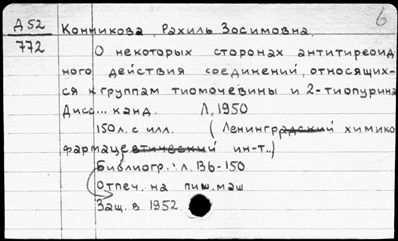 Д 52
772
6
Конникова, Рахиль Зосимовна.
О некоторых сторонах антитиреоид
ного действия соединений, относящих-
ся к группам тиомочевины и 2-тиопурина
Дисс... канд. Л, 1950
150 л. с илл. (Ленинградский химико
фармацевтический ин-т..)
Библиогр.: л. 136-150
Отпеч. на пиш. маш
Защ. в 1952